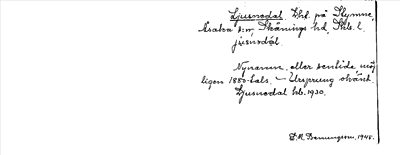 Ljusnedal. Lht. på Slymne,
Åsaka s:n Skånings hd, Skbs. l.
jusnədal.
Nynamn, eller sentida möj
ligen 1880-tals. — Ursprung okänt.
Ljusnedal hb. 1930.
1948.